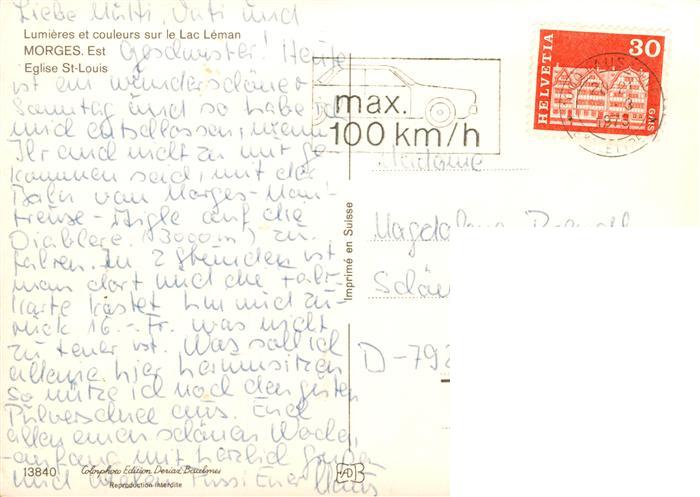 Liebe Mutti, Vati und
Lumières et couleurs sur le Lac Léman
MORGES. Est
Eglise St-Louis
Geschwister! Heute
ist ein wunderschöner
Sonntag und so habe ich
mich entschlossen, wenn
Ihr auch nicht zu mir ge
kommen seid, mit der
Bahn von Morges-Mon
treuse-Aigle auf die
Diablere (3000 m) zu
fahren. In 2 Stunden ist
man dort und die Fahr
karte kostet hin und zu-
rück 16.- Fr. was nicht
zu teuer ist. Was soll ich
alleine hier herumsitzen
so nütze ich noch den guten
Pulverschnee aus. Euch
allen einen schönen Wochen
anfang mit herzlich Grüßen
und Euer
13840
Colorphoto Edition Deriaz Baulmes
Reproduction interdite
Imprimé en Suisse
max.
100 km/h
HELVETIA
30
1973
Madame
Magdalena
D-792